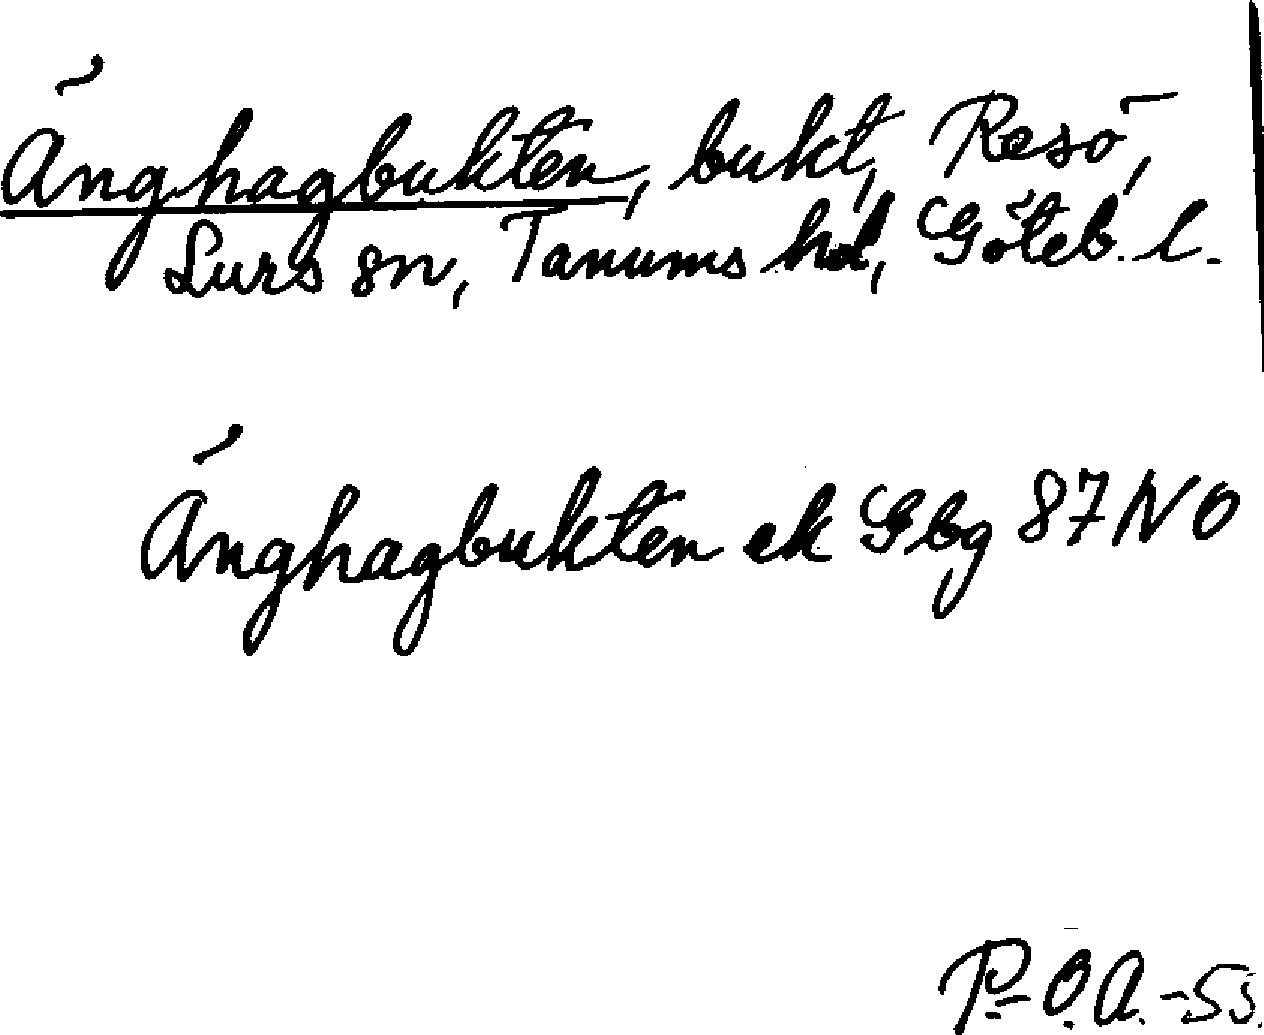 Änghagbukten, bukt, Resö,
Lurs sn, Tanums hd, Göteb. l.
Änghagbukten ek Gbg 87 NO
P-O.A.-55.